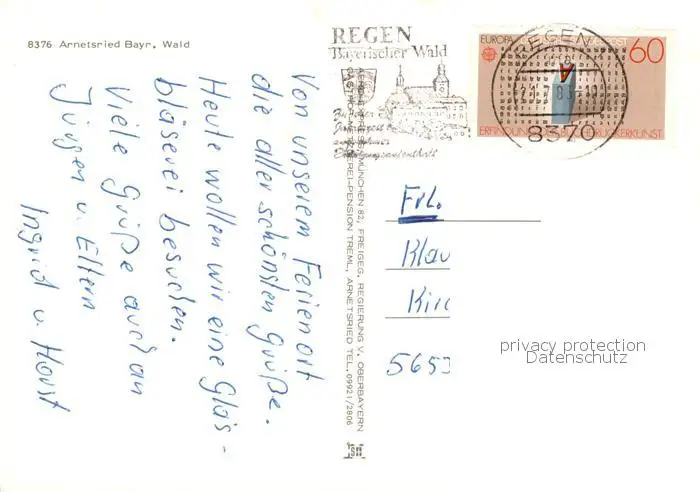 8376 Arnetsried Bayr. Wald
Von unserem Ferienort
die aller schönsten Grüße.
Heute wollen wir eine Glas-
bläserei besuchen.
Viele Grüße auch an
Jürgen u. Eltern
Ingrid u. Horst
REGEN
Bayerischer Wald
EUROPA
60
REGEN
8370
MÜNCHEN 82, FREIGEG. REGIERUNG V. OBERBAYERN
PENSION TREML, ARNETSRIED TEL. 09921/2806
Frl.
Klau
Kirc
565
privacy protection
Datenschutz